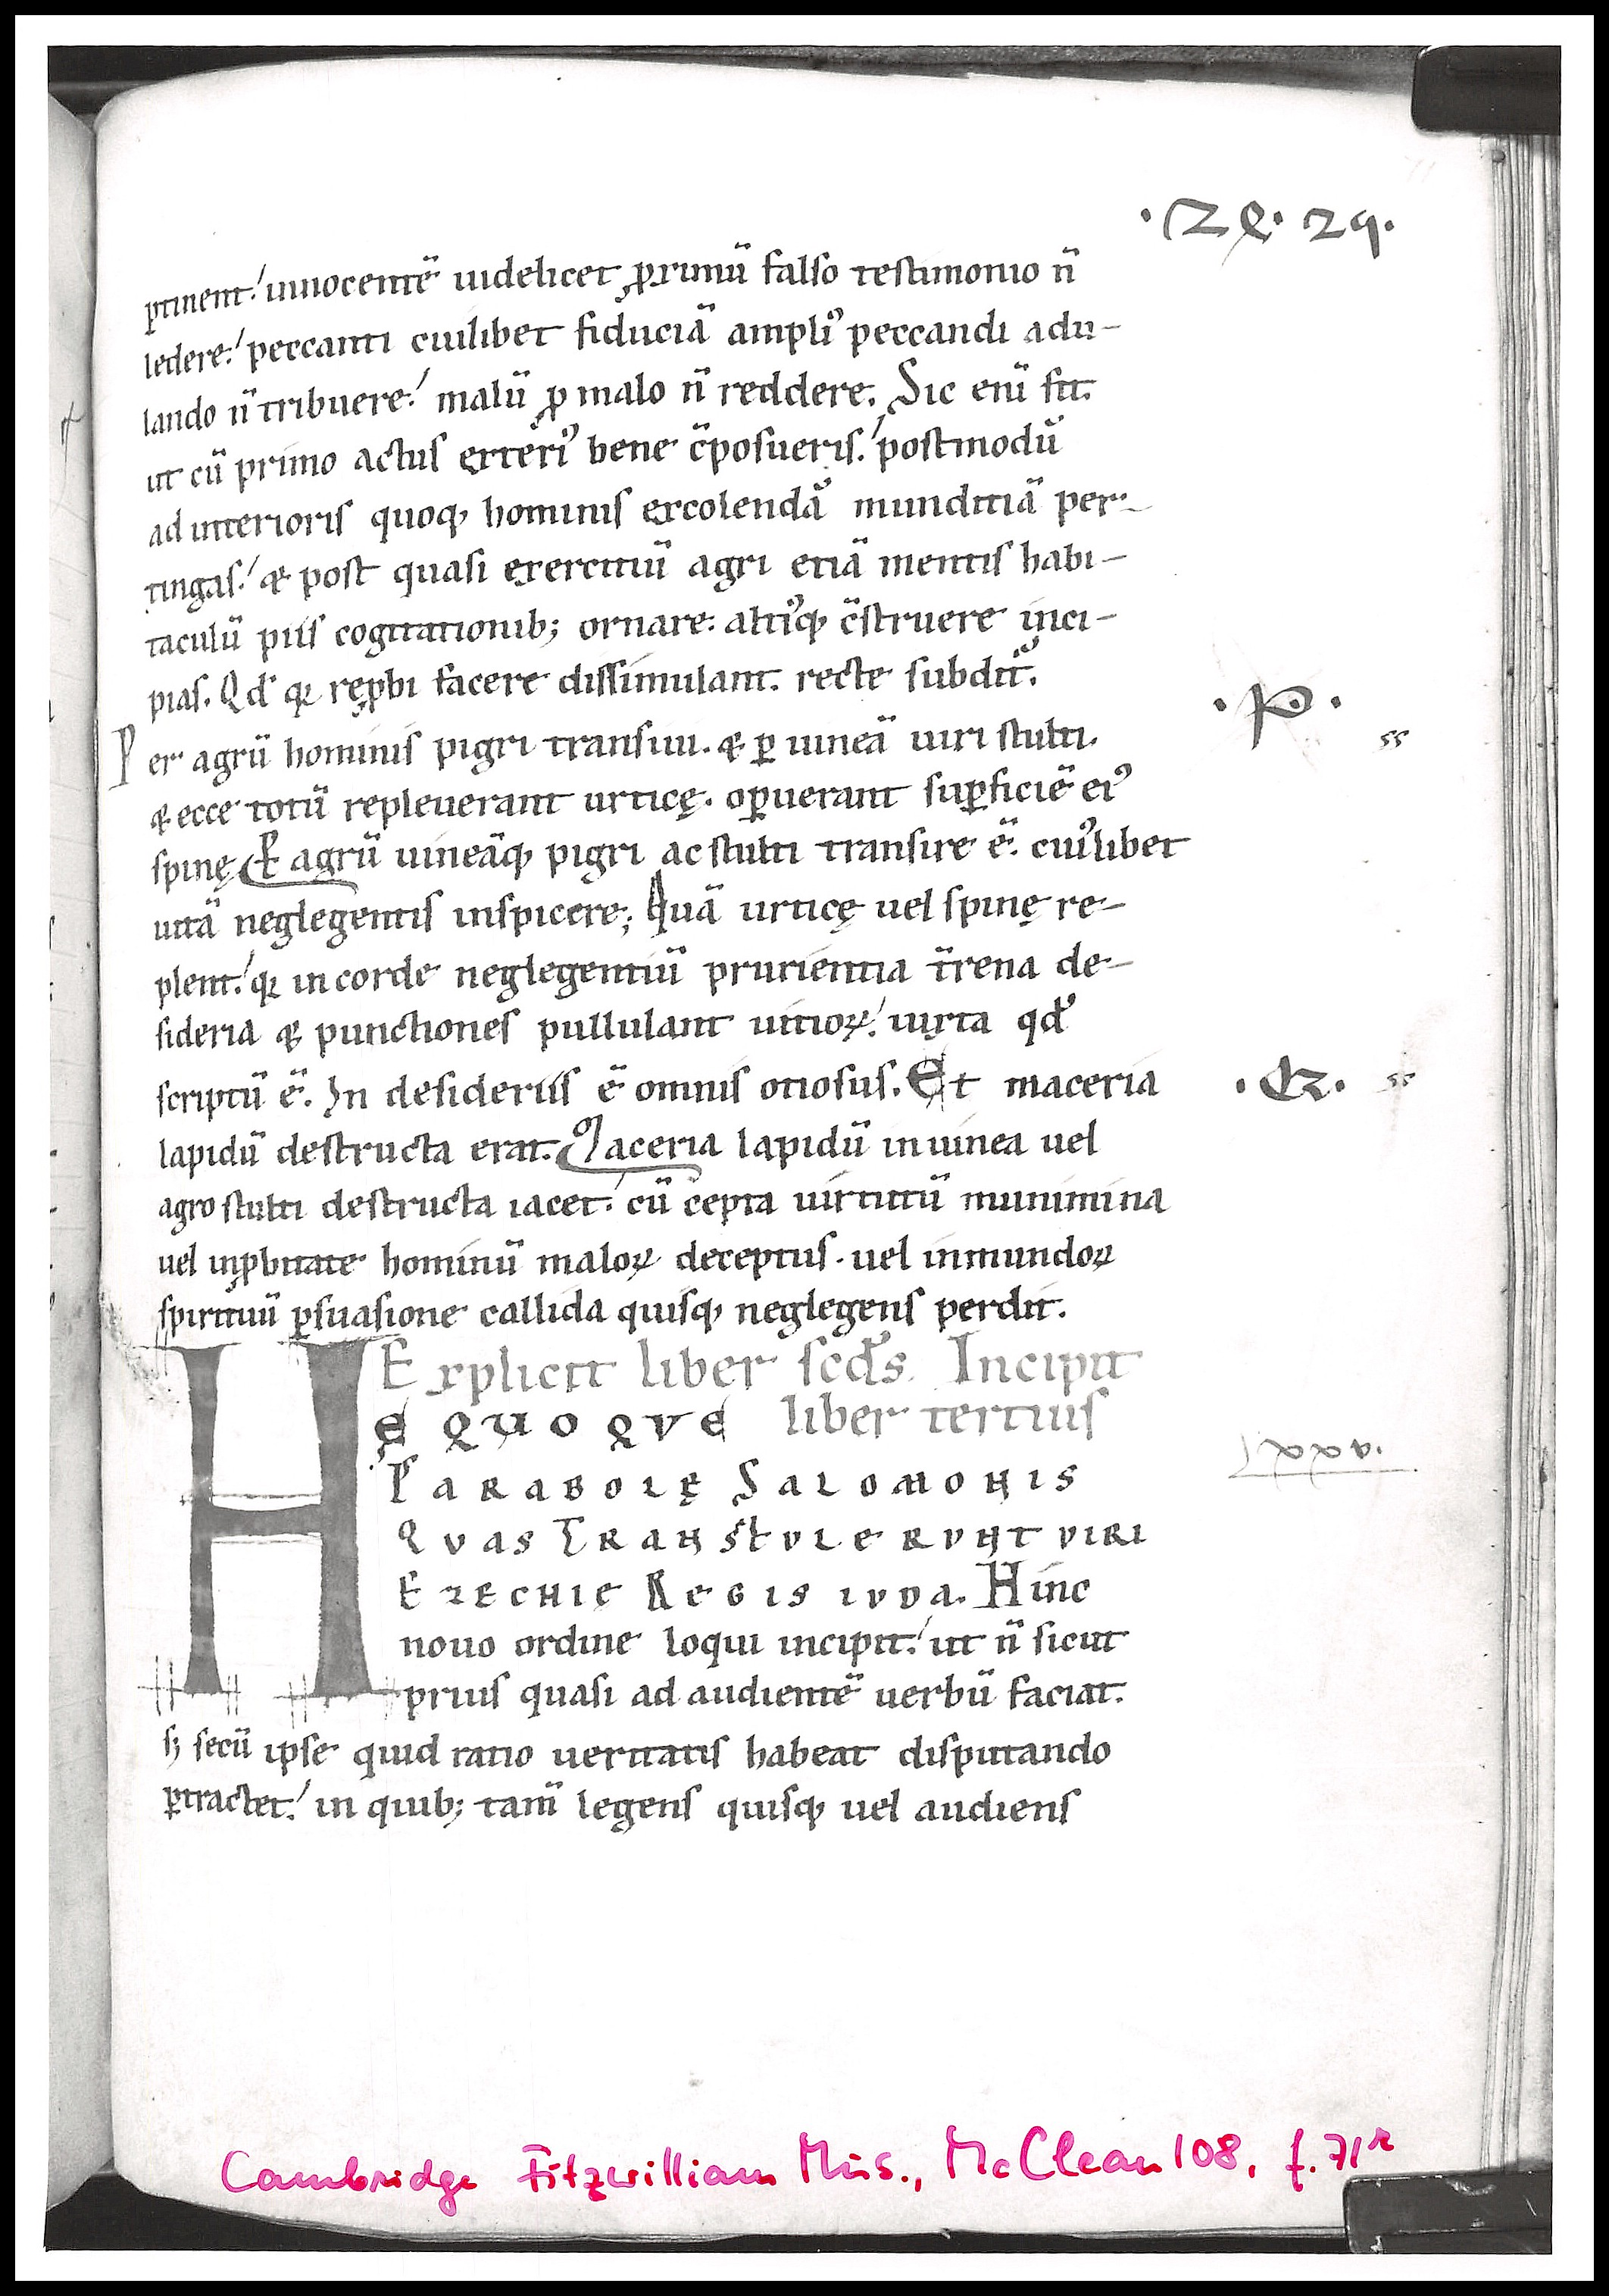 ·Ꝝ· 29·
ꝑtinent. innocentē uidelicet ꝓximū falso testimonio n̄
ledere. peccanti cuilibet fiduciā ampli᷒ peccandi adu-
lando n̄ tribuere. malū ꝓ malo n̄ reddere. Sic enī fit.
ut cū primo actus exteri᷒ bene c̄posueris. postmodū
ad interioris quoq; hominis excolendā munditiā per-
tingas. & post quasi exercitiū agri etiā mentis habi-
taculū piis cogitationib; ornare. alti᷒q; c̄struere inci-
pias. Qd̄ qꝛ reꝓbi facere dissimulant. recte subdit᷒.
Per agrū hominis pigri transiui. & ꝑ uineā uiri stulti.
·P· ss
& ecce totū repleuerant urticę. oꝑuerant suꝑficiē ei᷒
spinę Per agrū uineāq; pigri ac stulti transire ē. cui᷒libet
uitā neglegentis inspicere; Quā urticę uel spinę re-
plent. qꝛ in corde neglegentiū prurientia t̄rena de-
sideria & punctiones pullulant uitioꝝ. iuxta qd̄
scriptū ē. In desideriis ē omnis otiosus. Et maceria
·Et· ss
lapidū destructa erat. Maceria lapidū in uinea uel
agro stulti destructa iacet. cū cepta uirtutū munimina
uel inꝓbitate hominū maloꝝ deceptus. uel inmundoꝝ
spirituū ꝑsuasione callida quisq; neglegens perdit.
Explicit liber scd̄s. Incipit
HE QUOQVE liber tertius
PARABOLĘ SALOMONIS
lxxv.
QVAS TRANSTVLERVNT VIRI
EZECHIĘ REGIS IVDA. Hinc
nouo ordine loqui incipit. ut n̄ sicut
prius quasi ad audientē uerbū faciat.
sꝫ secū ipse quid ratio ueritatis habeat disputando
ꝑtractet. in quib; tam̄ legens quisq; uel audiens
Cambridge Fitzwilliam Mus., McClean 108, f. 71r